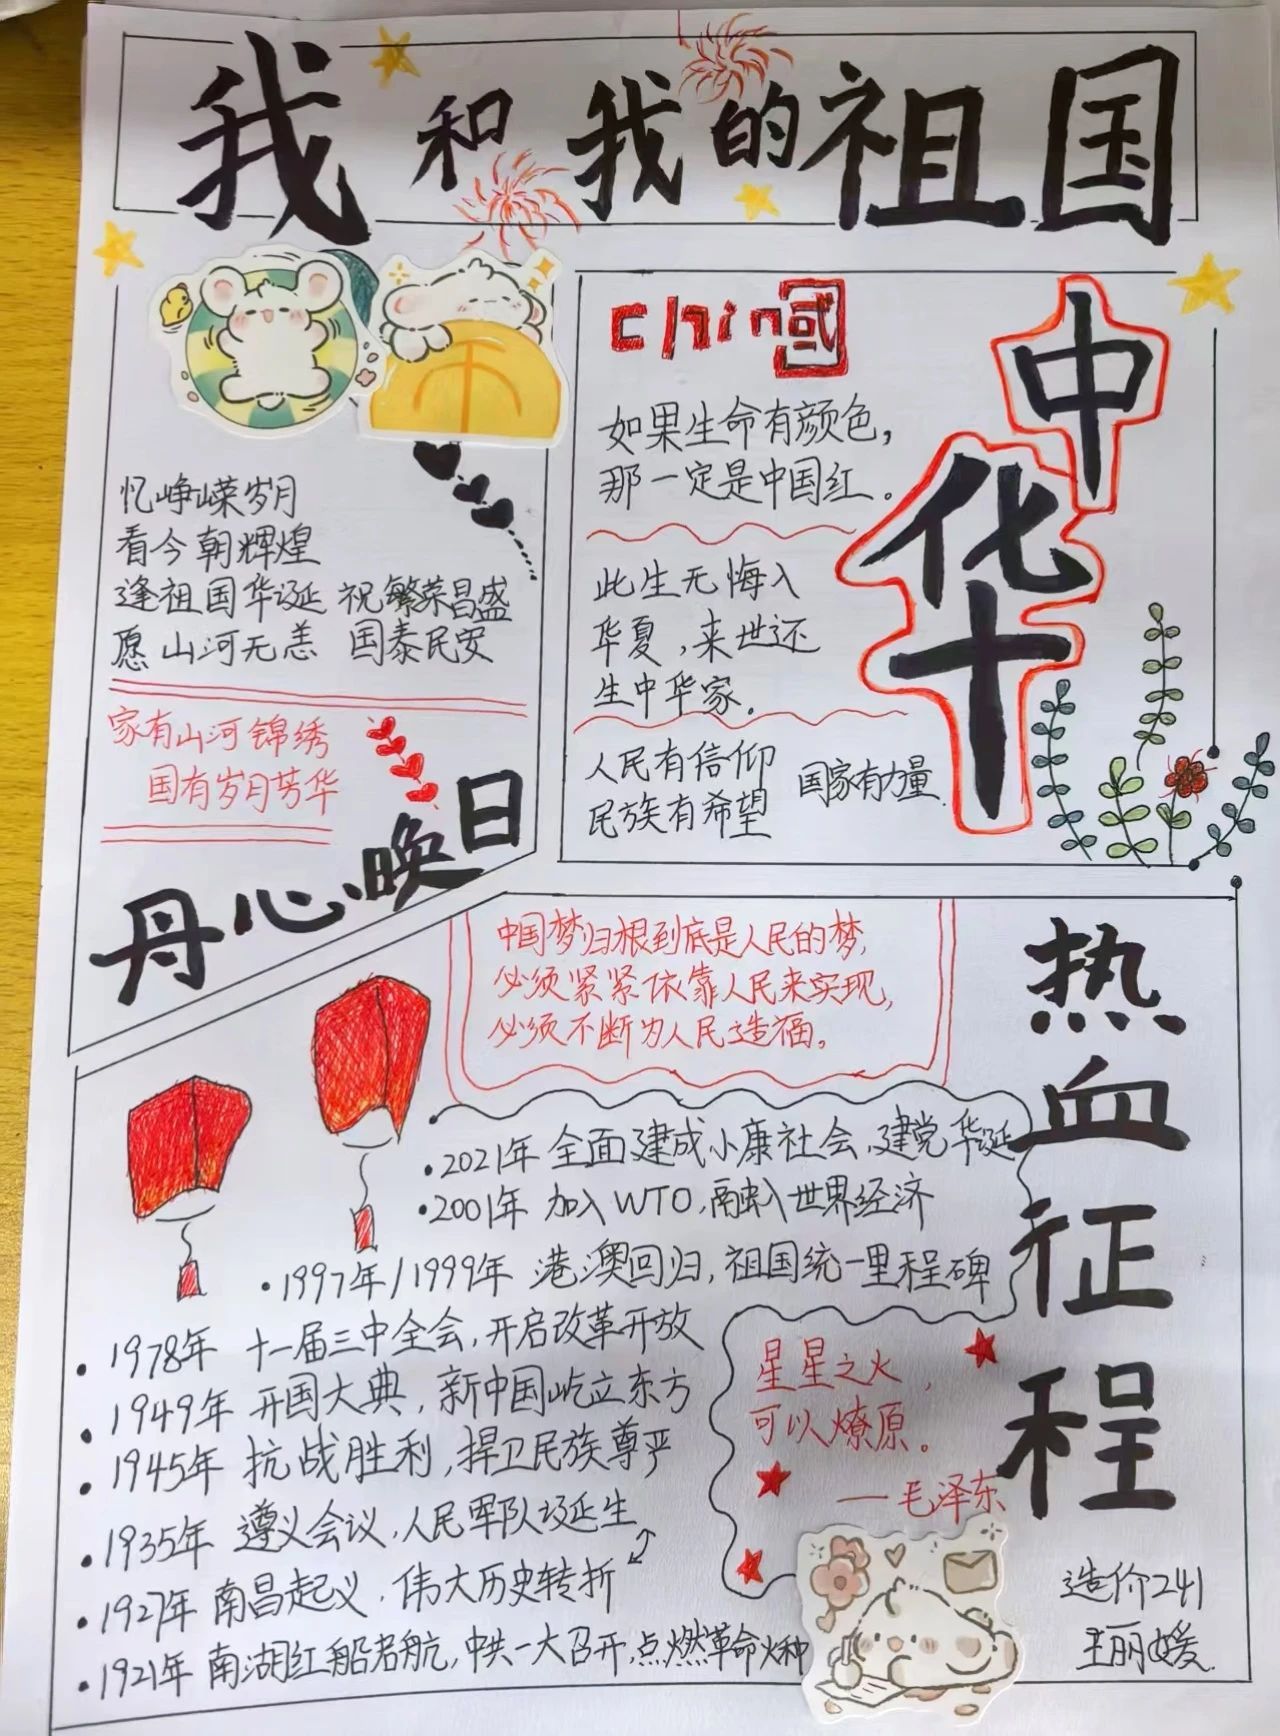 我和我的祖国
忆峥嵘岁月
看今朝辉煌
逢祖国华诞 祝繁荣昌盛
愿山河无恙 国泰民安
家有山河锦绣
国有岁月芳华
丹心映日
chin國
如果生命有颜色，
那一定是中国红。
此生无悔入
华夏，来世还
生中华家.
人民有信仰
民族有希望
国家有力量.
中华
中国梦归根到底是人民的梦，
必须紧紧依靠人民来实现，
必须不断为人民造福。
热血征程
·2021年 全面建成小康社会，建党华诞
·2001年 加入WTO，融入世界经济
·1997年/1999年 港澳回归，祖国统一里程碑
·1978年 十一届三中全会，开启改革开放
·1949年 开国大典，新中国屹立东方
·1945年 抗战胜利，捍卫民族尊严
·1935年 遵义会议，人民军队诞生
·1927年 南昌起义，伟大历史转折
·1921年 南湖红船启航，中共一大召开，点燃革命火种
星星之火，
可以燎原。
——毛泽东
造价241
王丽媛.